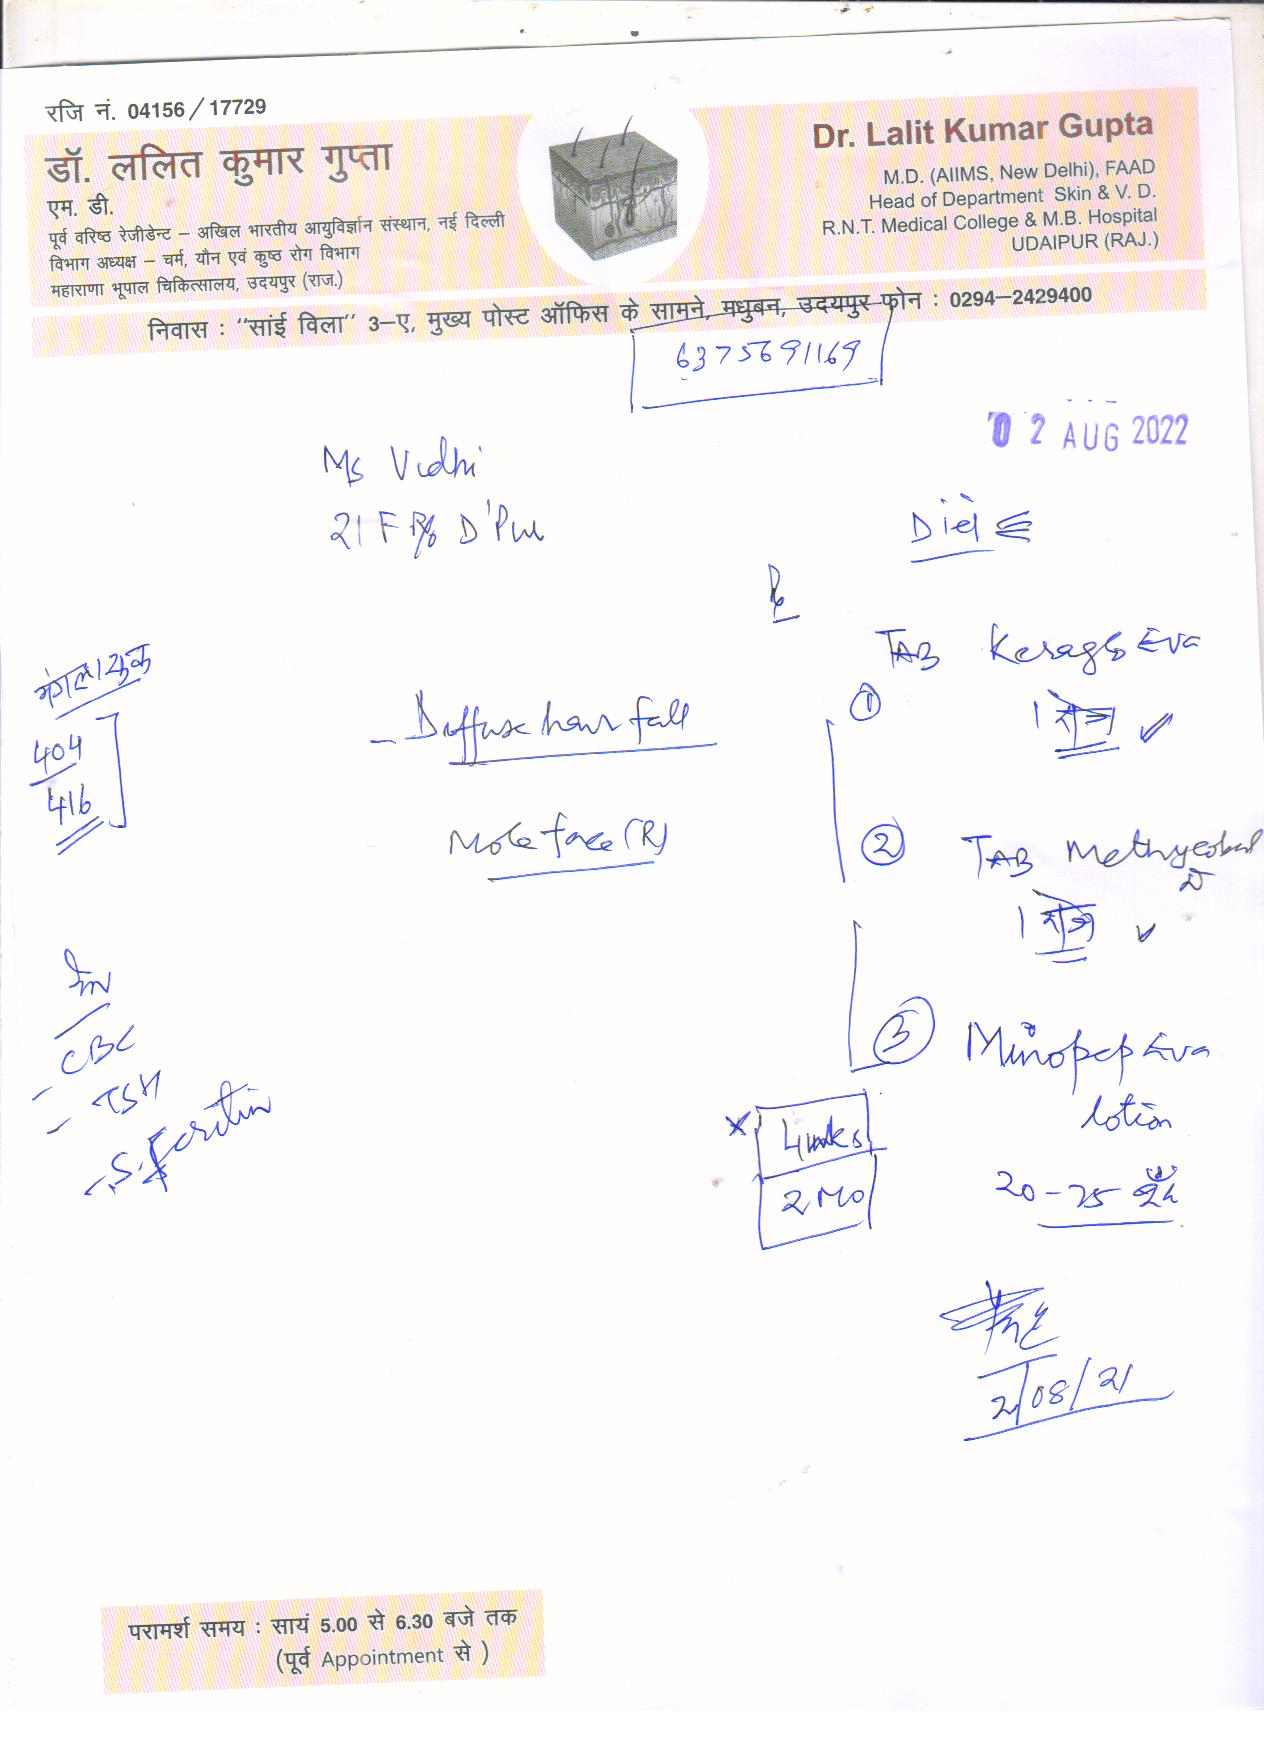 रजि नं. 04156 / 17729
डॉ. ललित कुमार गुप्ता
एम. डी.
पूर्व वरिष्ठ रेजीडेन्ट – अखिल भारतीय आयुर्विज्ञान संस्थान, नई दिल्ली
विभाग अध्यक्ष – चर्म, यौन एवं कुष्ठ रोग विभाग
महाराणा भूपाल चिकित्सालय, उदयपुर (राज.)
Dr. Lalit Kumar Gupta
M.D. (AIIMS, New Delhi), FAAD
Head of Department Skin & V. D.
R.N.T. Medical College & M.B. Hospital
UDAIPUR (RAJ.)
निवास : "सांई विला" 3–ए, मुख्य पोस्ट ऑफिस के सामने, मधुबन, उदयपुर फोन : 0294–2429400
6375691169
02 AUG 2022
Ms Vidhi
21 F R/o D'Pur
Diet
Rx
404
416
- Diffuse hair fall
Mole face (R)
① TAB Keraglo Eva
1 रोज
② TAB Methycobal
1 रोज
③ Minopep Eva
lotion
20 - 25
x 4 wks
2 Mo
- CBC
- TSH
- S. Ferritin
2/08/21
परामर्श समय : सायं 5.00 से 6.30 बजे तक
(पूर्व Appointment से )